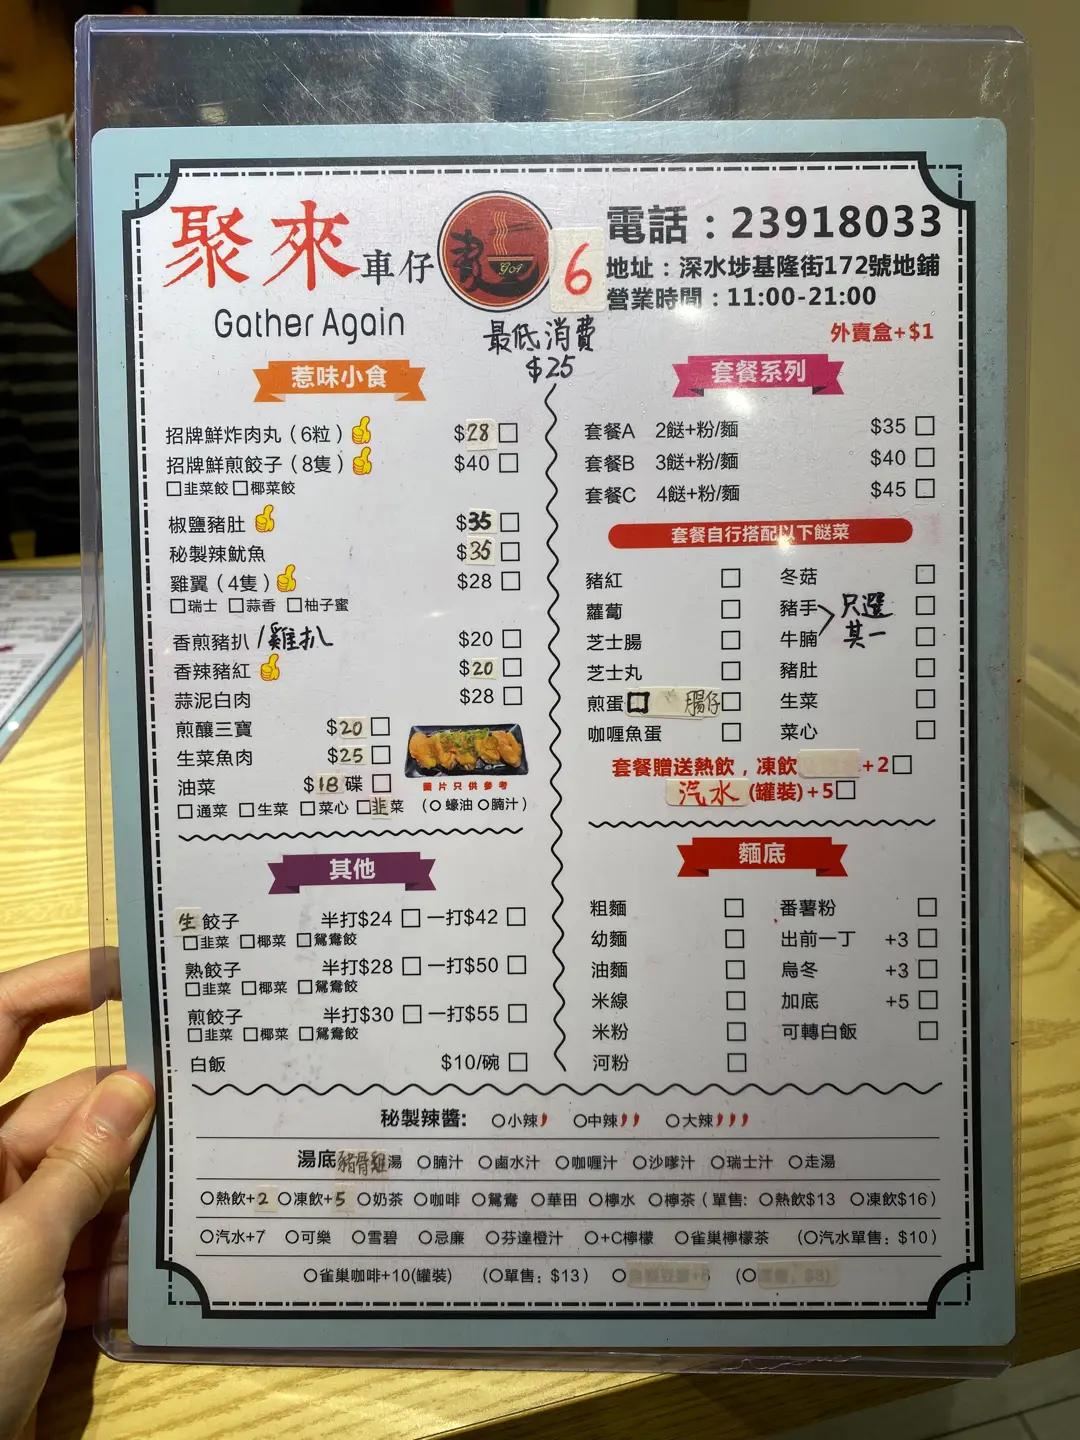 聚來車仔麵
GA
6
Gather Again
電話：23918033
地址：深水埗基隆街172號地鋪
營業時間：11:00-21:00
外賣盒+$1
最低消費
$25
惹味小食
招牌鮮炸肉丸（6粒） $28
招牌鮮煎餃子（8隻） $40
韭菜餃 椰菜餃
椒鹽豬肚 $35
秘製辣魷魚 $35
雞翼（4隻） $28
瑞士 蒜香 柚子蜜
香煎豬扒/雞扒 $20
香辣豬紅 $20
蒜泥白肉 $28
煎釀三寶 $20
生菜魚肉 $25
油菜 $18碟
圖片只供參考
通菜 生菜 菜心 韭菜 （蠔油 腩汁）
其他
生餃子 半打$24 一打$42
韭菜 椰菜 鴛鴦餃
熟餃子 半打$28 一打$50
韭菜 椰菜 鴛鴦餃
煎餃子 半打$30 一打$55
韭菜 椰菜 鴛鴦餃
白飯 $10/碗
套餐系列
套餐A 2餸+粉/麵 $35
套餐B 3餸+粉/麵 $40
套餐C 4餸+粉/麵 $45
套餐自行搭配以下餸菜
豬紅 冬菇
蘿蔔 豬手
芝士腸 牛腩
只選
其一
芝士丸 豬肚
煎蛋 腸仔 生菜
咖喱魚蛋 菜心
套餐贈送熱飲，凍飲+2
汽水(罐裝)+5
麵底
粗麵 番薯粉
幼麵 出前一丁 +3
油麵 烏冬 +3
米線 加底 +5
米粉 可轉白飯
河粉
秘製辣醬: 小辣 中辣 大辣
湯底 豬骨雞湯 腩汁 鹵水汁 咖喱汁 沙嗲汁 瑞士汁 走湯
熱飲+2 凍飲+5 奶茶 咖啡 鴛鴦 華田 檸水 檸茶（單售: 熱飲$13 凍飲$16）
汽水+7 可樂 雪碧 忌廉 芬達橙汁 +C檸檬 雀巢檸檬茶 （汽水單售：$10）
雀巢咖啡+10(罐裝) （單售；$13）